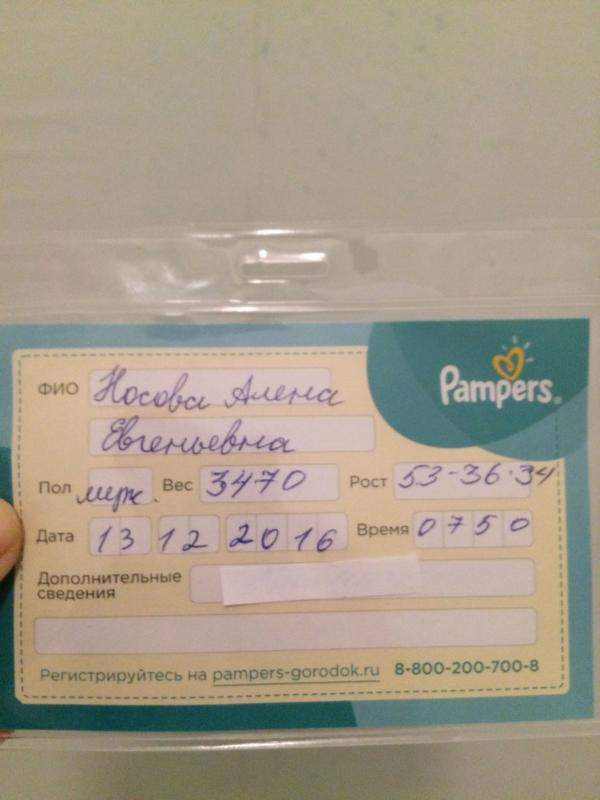 Pampers®
ФИО Носова Алена
Евгеньевна
Пол муж. Вес 3470 Рост 53-36-34
Дата 13 12 2016 Время 0750
Дополнительные
сведения
Регистрируйтесь на pampers-gorodok.ru 8-800-200-700-8